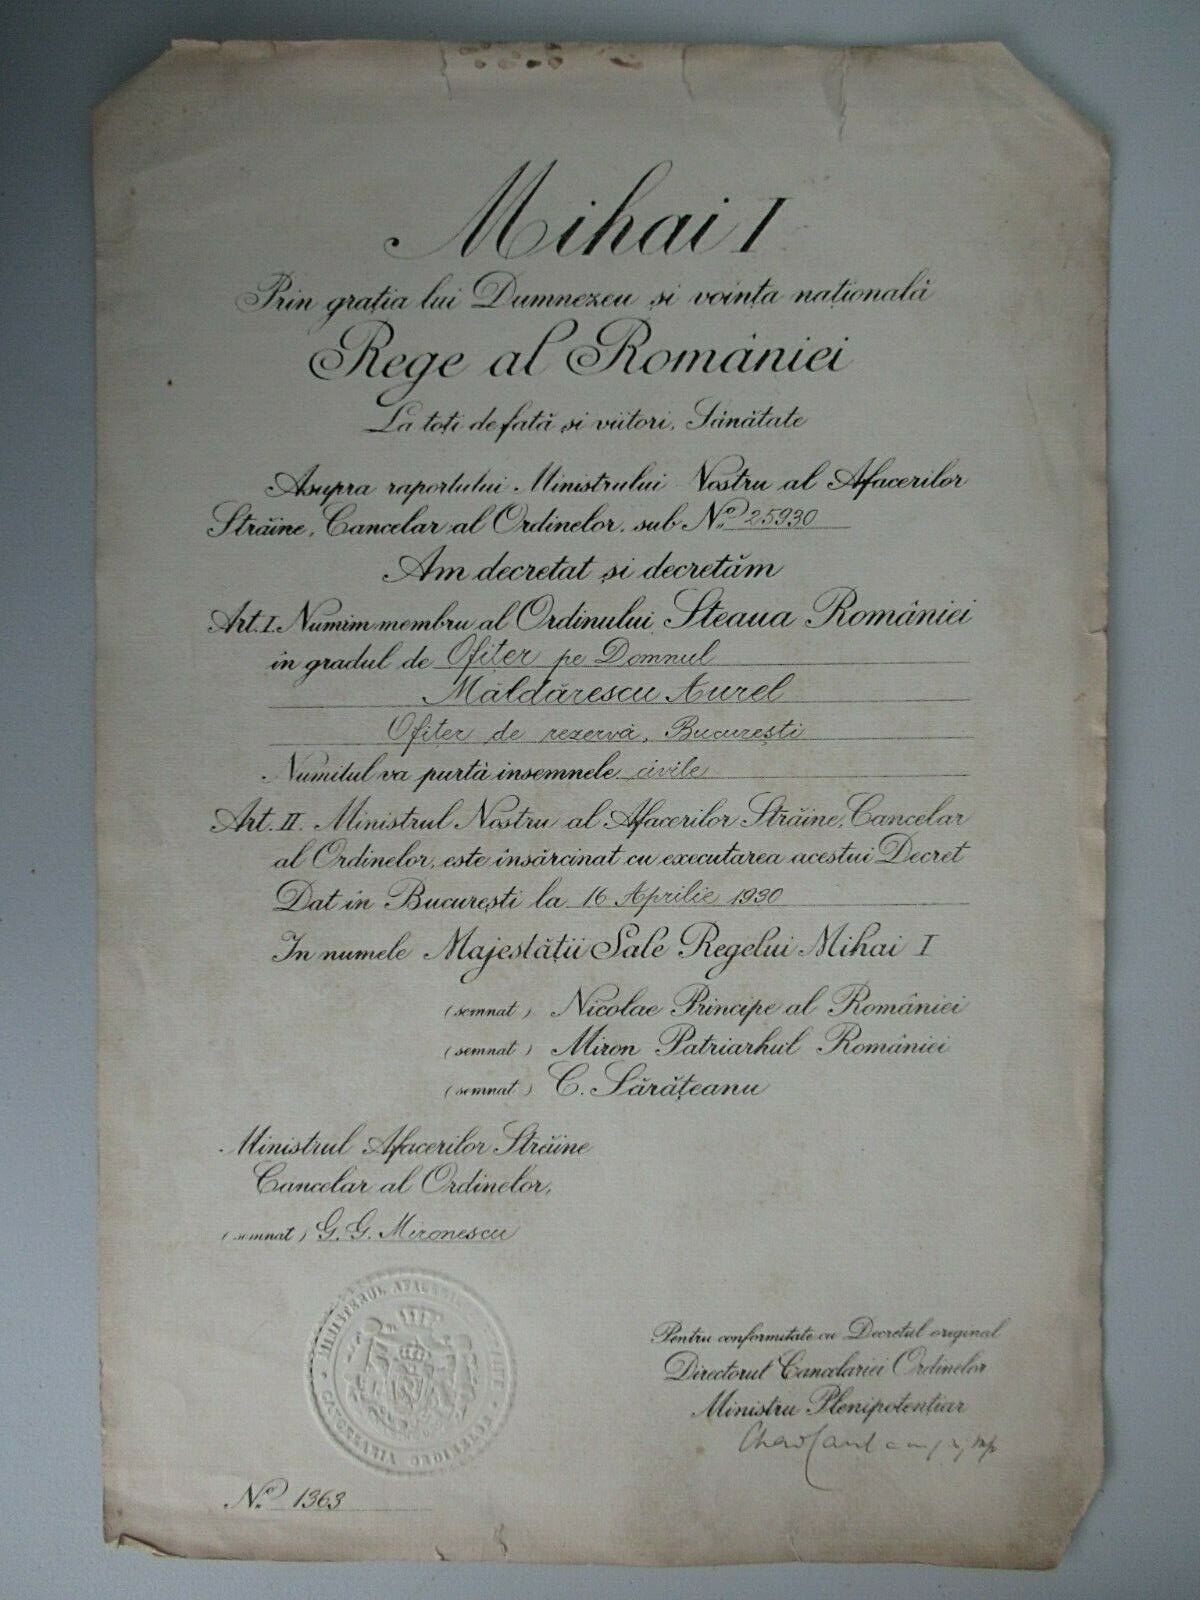 Mihai I
Prin grația lui Dumnezeu și voința națională
Rege al României
La toți de față și viitori, Sănătate
Asupra raportului Ministrului Nostru al Afacerilor
Străine, Cancelar al Ordinelor, sub No. 25930
Am decretat și decretăm
Art. I. Numim membru al Ordinului Steaua României
în gradul de Ofițer pe Domnul
Măldărescu Aurel
Ofițer de rezervă, București
Numitul va purtà insemnele civile
Art. II. Ministrul Nostru al Afacerilor Străine, Cancelar
al Ordinelor, este însărcinat cu executarea acestui Decret
Dat în București la 16 Aprilie 1930
In numele Majestății Sale Regelui Mihai I
(semnat) Nicolae Principe al României
(semnat) Miron Patriarhul României
(semnat) C. Sărățeanu
Ministrul Afacerilor Străine
Cancelar al Ordinelor,
(semnat) G. G. Mironescu
MINISTERUL AFACERILOR STRĂINE
CANCELARIA ORDINELOR
Pentru conformitate cu Decretul original
Directorul Cancelariei Ordinelor
Ministru Plenipotențiar
No. 1363